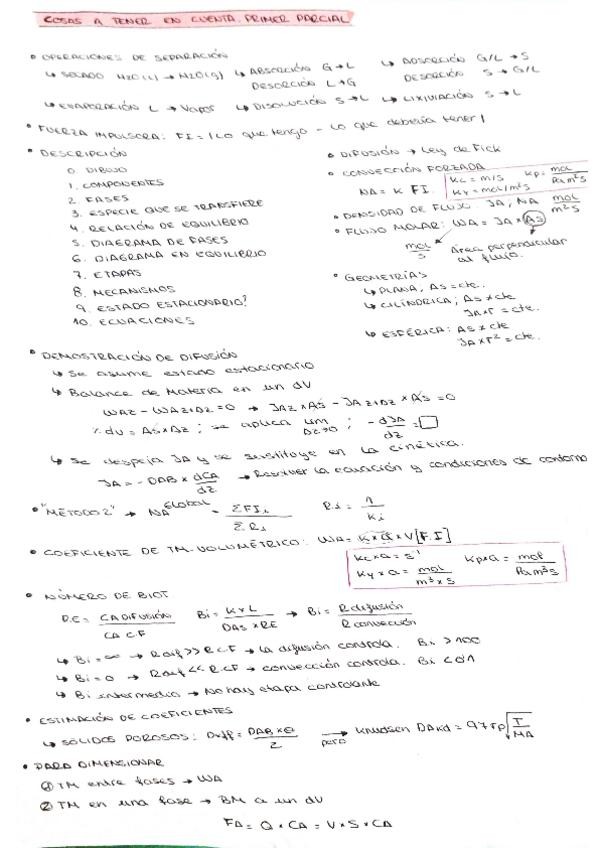 COSAS A TENER EN CUENTA. PRIMER PARCIAL
• OPERACIONES DE SEPARACIÓN
↳ SECADO H2O(L) → H2O(g) ↳ ABSORCIÓN G→L ↳ ADSORCIÓN G/L → S
DESORCIÓN L→G DESORCIÓN S → G/L
↳ EVAPORACIÓN L → Vapor ↳ DISOLUCIÓN S→L ↳ LIXIVIACIÓN S → L
• FUERZA IMPULSORA: FI = | Lo que tengo - Lo que debería tener |
• DESCRIPCIÓN
0. DIBUJO
1. COMPONENTES
2. FASES
3. ESPECIE QUE SE TRANSFIERE
4. RELACIÓN DE EQUILIBRIO
5. DIAGRAMA DE FASES
6. DIAGRAMA EN EQUILIBRIO
7. ETAPAS
8. MECANISMOS
9. ESTADO ESTACIONARIO?
10. ECUACIONES
• DIFUSIÓN → Ley de Fick
• CONVECCIÓN FORZADA
NA = K FI.
Kc = m/s Kp = mol/Pa m²s
Ky = mol/m²s
• DENSIDAD DE FLUJO. JA, NA mol/m²s
• FLUJO MOLAR: WA = JA × AS
mol/s Área perpendicular al flujo.
• GEOMETRÍAS
↳ PLANA, AS = cte.
↳ CILÍNDRICA; AS ≠ cte
JA×r = cte.
↳ ESFÉRICA: AS ≠ cte
JA×r² = cte.
• DEMOSTRACIÓN DE DIFUSIÓN
↳ Se asume estado estacionario
↳ Balance de Materia en un dV
WAz - WAz+Dz = 0 → JAz × AS - JAz+Dz × AS = 0
% dV = AS × Dz ; se aplica lim Dz→0 ; -dJA/dz = □
↳ Se despeja JA y se sustituye en la cinética.
JA = - DAB × dCA/dz → Resolver la ecuación y condiciones de contorno
• "MÉTODO 2" → NA GLOBAL = ΣFIi / ΣRi Ri = 1/Ki
• COEFICIENTE DE TM VOLUMÉTRICO: WA = K × a × V [F.I]
Kc×a = s⁻¹ Kp×a = mol/Pa m³s
Ky×a = mol/m³×s
• NÚMERO DE BIOT.
= CA DIFUSIÓN / CA C.F Bi = K×L / DAS × RE → Bi = R difusión / R convección
↳ Bi = ∞ → R dif >> R CF → La difusión controla. Bi > 100
↳ Bi = 0 → R dif << R CF → convección controla. Bi < 0'1
↳ Bi intermedio → No hay etapa controlante
• ESTIMACIÓN DE COEFICIENTES
↳ SÓLIDOS POROSOS: Deff = DAB × Θ / 2 → poro Knudsen DAKd = 97 rp √T/MA
• PARA DIMENSIONAR
① TM entre fases → WA
② TM en una fase → BM a un dV
FA = Q × CA = V × S × CA